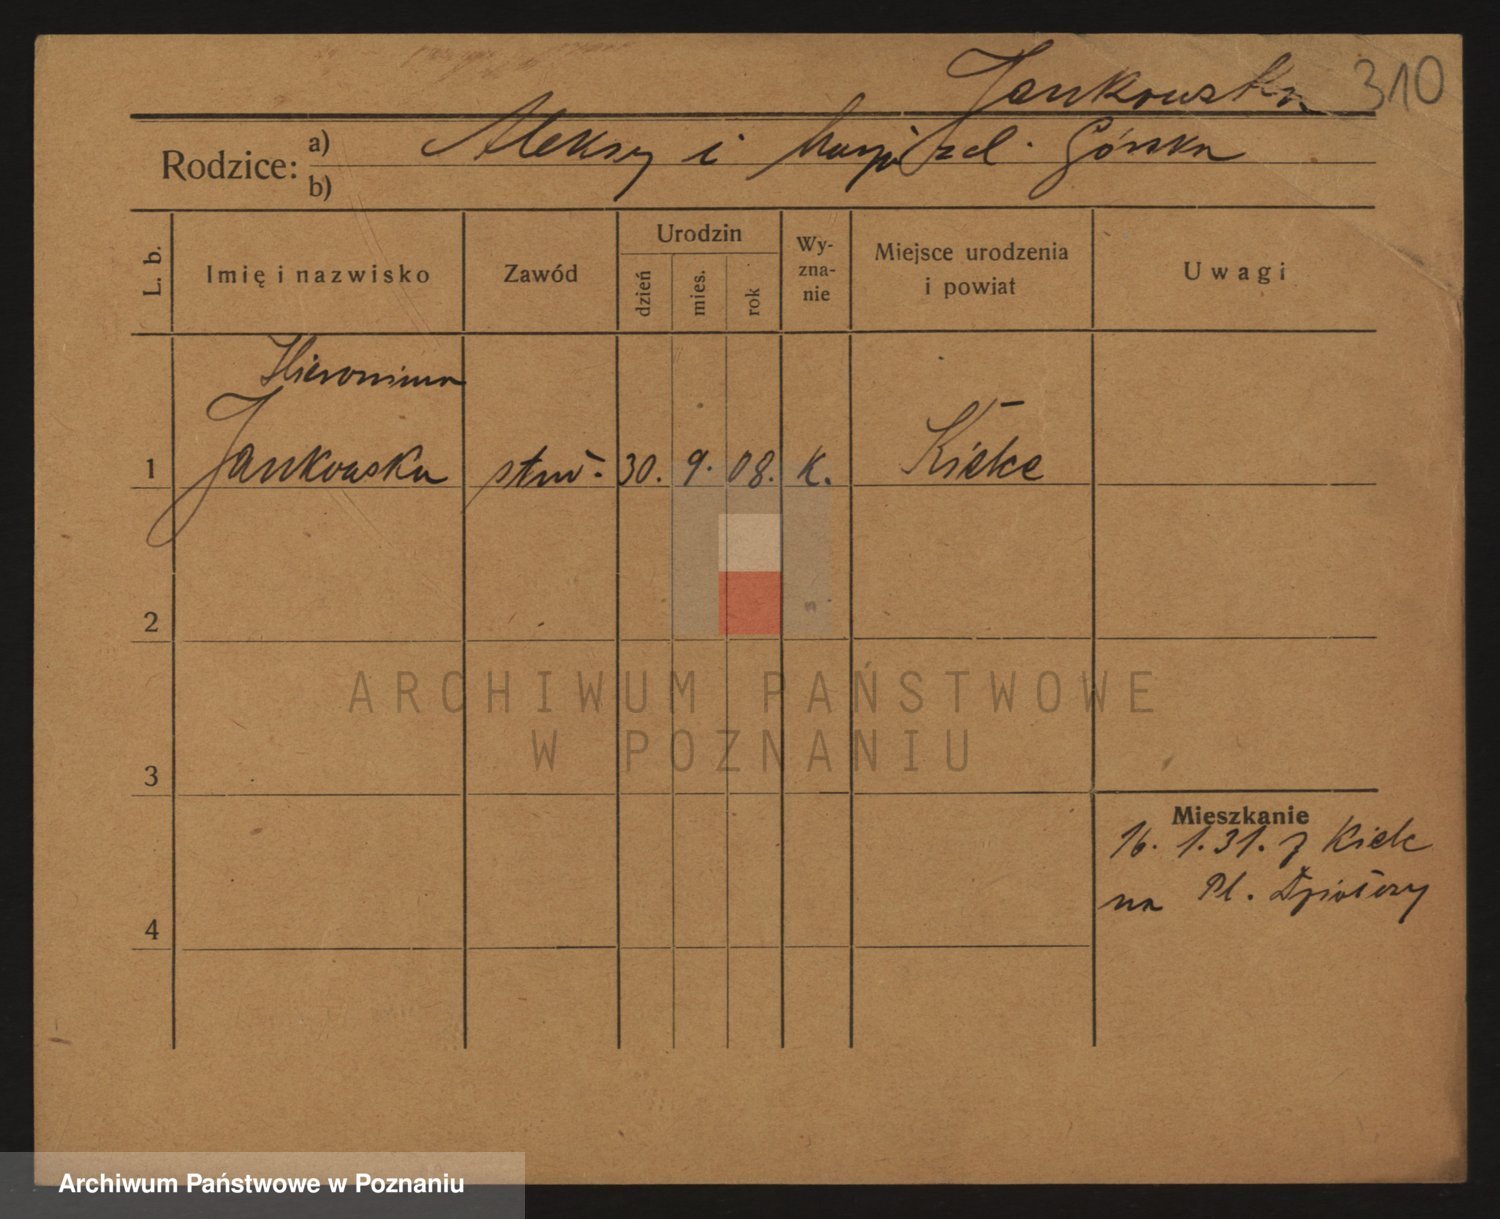 Jankowska 310
Rodzice: a) Aleksy i Marja zd. Górska
b)
L. b. Imię i nazwisko Zawód Urodzin dzień mies. rok Wyznanie Miejsce urodzenia i powiat Uwagi
Hieronima
1 Jankowska 30. 9. 08. K. Kielce
2
ARCHIWUM PAŃSTWOWE
W POZNANIU
3
Mieszkanie
16. 1. 31. z Kielc
na Pl. Działowy
4
Archiwum Państwowe w Poznaniu